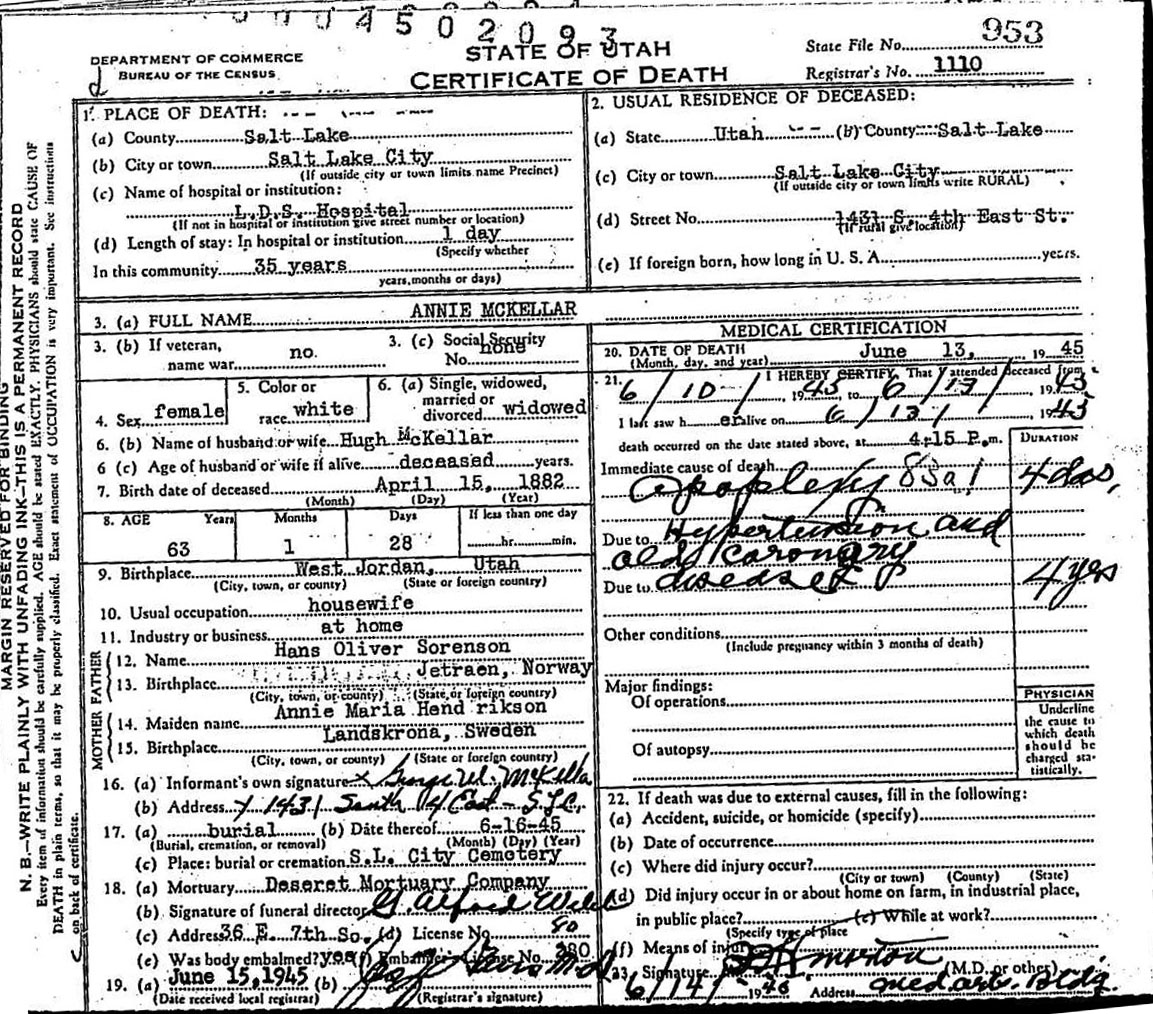 0 0 4 5 0 2 0 9 3
DEPARTMENT OF COMMERCE
BUREAU OF THE CENSUS
STATE OF UTAH
CERTIFICATE OF DEATH
State File No. 953
Registrar's No. 1110
1. PLACE OF DEATH:
(a) County Salt Lake
(b) City or town Salt Lake City
(If outside city or town limits name Precinct)
(c) Name of hospital or institution:
L.D.S. Hospital
(If not in hospital or institution give street number or location)
(d) Length of stay: In hospital or institution 1 day
(Specify whether
In this community 35 years
years, months or days)
2. USUAL RESIDENCE OF DECEASED:
(a) State Utah (b) County Salt Lake
(c) City or town Salt Lake City
(If outside city or town limits write RURAL)
(d) Street No. 1431 S. 4th East St.
(If rural give location)
(e) If foreign born, how long in U. S. A. years.
3. (a) FULL NAME ANNIE MCKELLAR
3. (b) If veteran, name war no.
3. (c) Social Security No. none
4. Sex female
5. Color or race white
6. (a) Single, widowed, married or divorced widowed
6. (b) Name of husband or wife Hugh McKellar
6 (c) Age of husband or wife if alive deceased years.
7. Birth date of deceased April 15, 1882
(Month) (Day) (Year)
8. AGE Years Months Days If less than one day
63 1 28 hr. min.
9. Birthplace West Jordan, Utah
(City, town, or county) (State or foreign country)
10. Usual occupation housewife
11. Industry or business at home
FATHER
12. Name Hans Oliver Sorenson
13. Birthplace Jetraen, Norway
(City, town, or county) (State or foreign country)
MOTHER
14. Maiden name Annie Maria Hend rikson
15. Birthplace Landskrona, Sweden
(City, town, or county) (State or foreign country)
16. (a) Informant's own signature x George W. McKella
(b) Address 1431 South 4 East - S.L.C.
17. (a) burial (b) Date thereof 6-16-45
(Burial, cremation, or removal) (Month) (Day) (Year)
(c) Place: burial or cremation S.L. City Cemetery
18. (a) Mortuary Deseret Mortuary Company
(b) Signature of funeral director G. Alford
(c) Address 36 E. 7th So. (d) License No. 80
(e) Was body embalmed? yes (f) Embalmer License No. 280
19. (a) June 15, 1945 (b)
(Date received local registrar) (Registrar's signature)
MEDICAL CERTIFICATION
20. DATE OF DEATH June 13, 1945
(Month, day, and year)
21. I HEREBY CERTIFY, That I attended deceased from
6/10 1945 to 6/13/ 1945
I last saw her alive on 6/13/ 1945
death occurred on the date stated above, at 4:15 P.m.
DURATION
Immediate cause of death
apoplexy 83a1 4 das,
Due to Hypertension and
old coronary
Due to disease 4 yrs
Other conditions
(Include pregnancy within 3 months of death)
Major findings:
Of operations
Of autopsy
PHYSICIAN
Underline
the cause to
which death
should be
charged sta-
tistically.
22. If death was due to external causes, fill in the following:
(a) Accident, suicide, or homicide (specify)
(b) Date of occurrence
(c) Where did injury occur?
(City or town) (County) (State)
(d) Did injury occur in or about home on farm, in industrial place,
in public place? (e) While at work?
(Specify type of place
(f) Means of injury
23. Signature Morton (M.D. or other)
6/14/ 1945 Address Med. Arts. Bldg.
MARGIN RESERVED FOR BINDING
N. B.—WRITE PLAINLY WITH UNFADING INK—THIS IS A PERMANENT RECORD
Every item of information should be carefully supplied. AGE should be stated EXACTLY. PHYSICIANS should state CAUSE OF
DEATH in plain terms, so that it may be properly classified. Exact statement of OCCUPATION is very important. See instructions
on back of certificate.